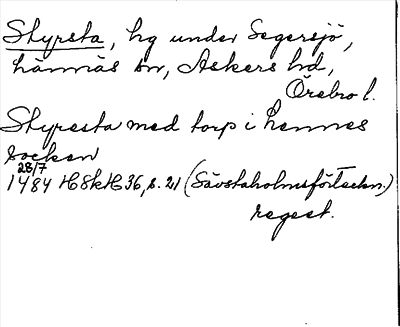 Styrsta, hg under Segersjö,
Lännäs sn, Askers hd,
Örebro l.
Styresta med torp i Lennes
socken
28/7
1484 HSkH 36, s. 21 (Sävstaholmsförteckn.)
regest.